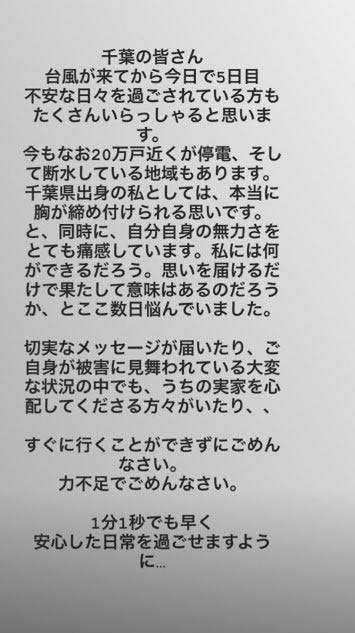 千葉の皆さん
台風が来てから今日で5日目
不安な日々を過ごされている方も
たくさんいらっしゃると思いま
す。
今もなお20万戸近くが停電、そし
て断水している地域もあります。
千葉県出身の私としては、本当に
胸が締め付けられる思いです。
と、同時に、自分自身の無力さを
とても痛感しています。私には何
ができるだろう。思いを届けるだ
けで果たして意味はあるのだろう
か、とここ数日悩んでいました。
切実なメッセージが届いたり、ご
自身が被害に見舞われている大変
な状況の中でも、うちの実家を心
配してくださる方々がいたり、、
すぐに行くことができずにごめん
なさい。
力不足でごめんなさい。
1分1秒でも早く
安心した日常を過ごせますよう
に...